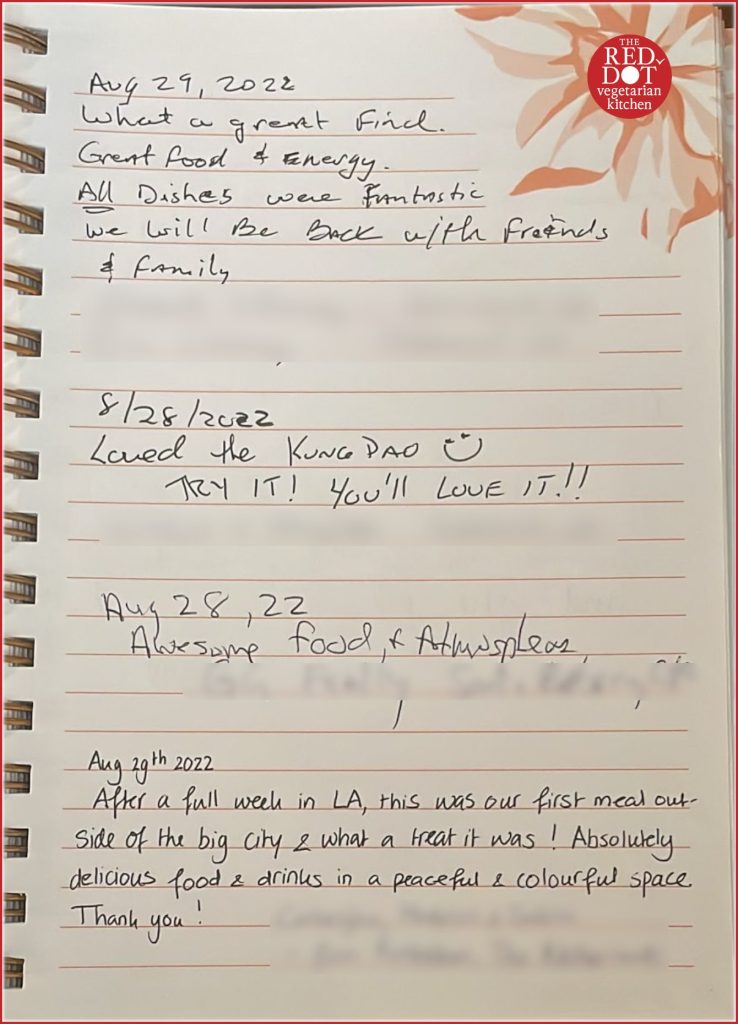 THE
RED
DOT
vegetarian
kitchen
Aug 29, 2022
What a great Find.
Great food & Energy.
All Dishes were Fantastic
We Will Be Back with Freinds
& Family
8/28/2022
Loved the KUNG PAO
TRY IT! YOU'll LOVE IT.!!
Aug 28, 22
Awesome food, & Atmosphear,
Aug 29th 2022
After a full week in LA, this was our first meal out-
side of the big city & what a treat it was! Absolutely
delicious food & drinks in a peaceful & colourful space.
Thank you!